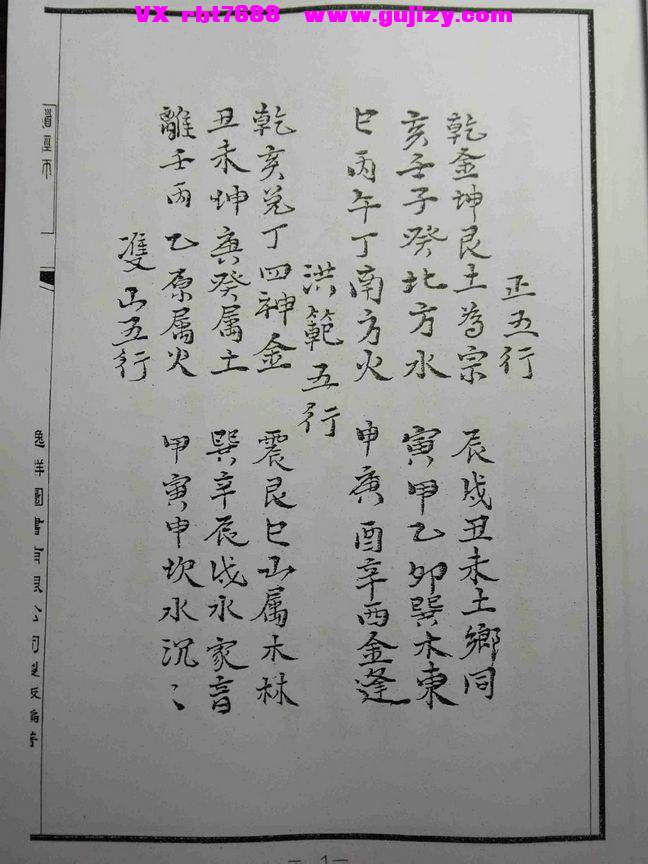 VX rbt7688 www.gujizy.com
正五行
乾金坤艮土為宗 辰戌丑未土鄉同
亥壬子癸北方水 寅甲乙卯巽木東
巳丙午丁南方火 申庚酉辛西金逢
洪範五行
乾亥兌丁四神金 震艮巳山属木林
丑未坤庚癸属土 巽辛辰戌水家音
離壬丙乙原属火 甲寅申坎水沉〻
雙山五行
逸群圖書有限公司製版
一 1 一